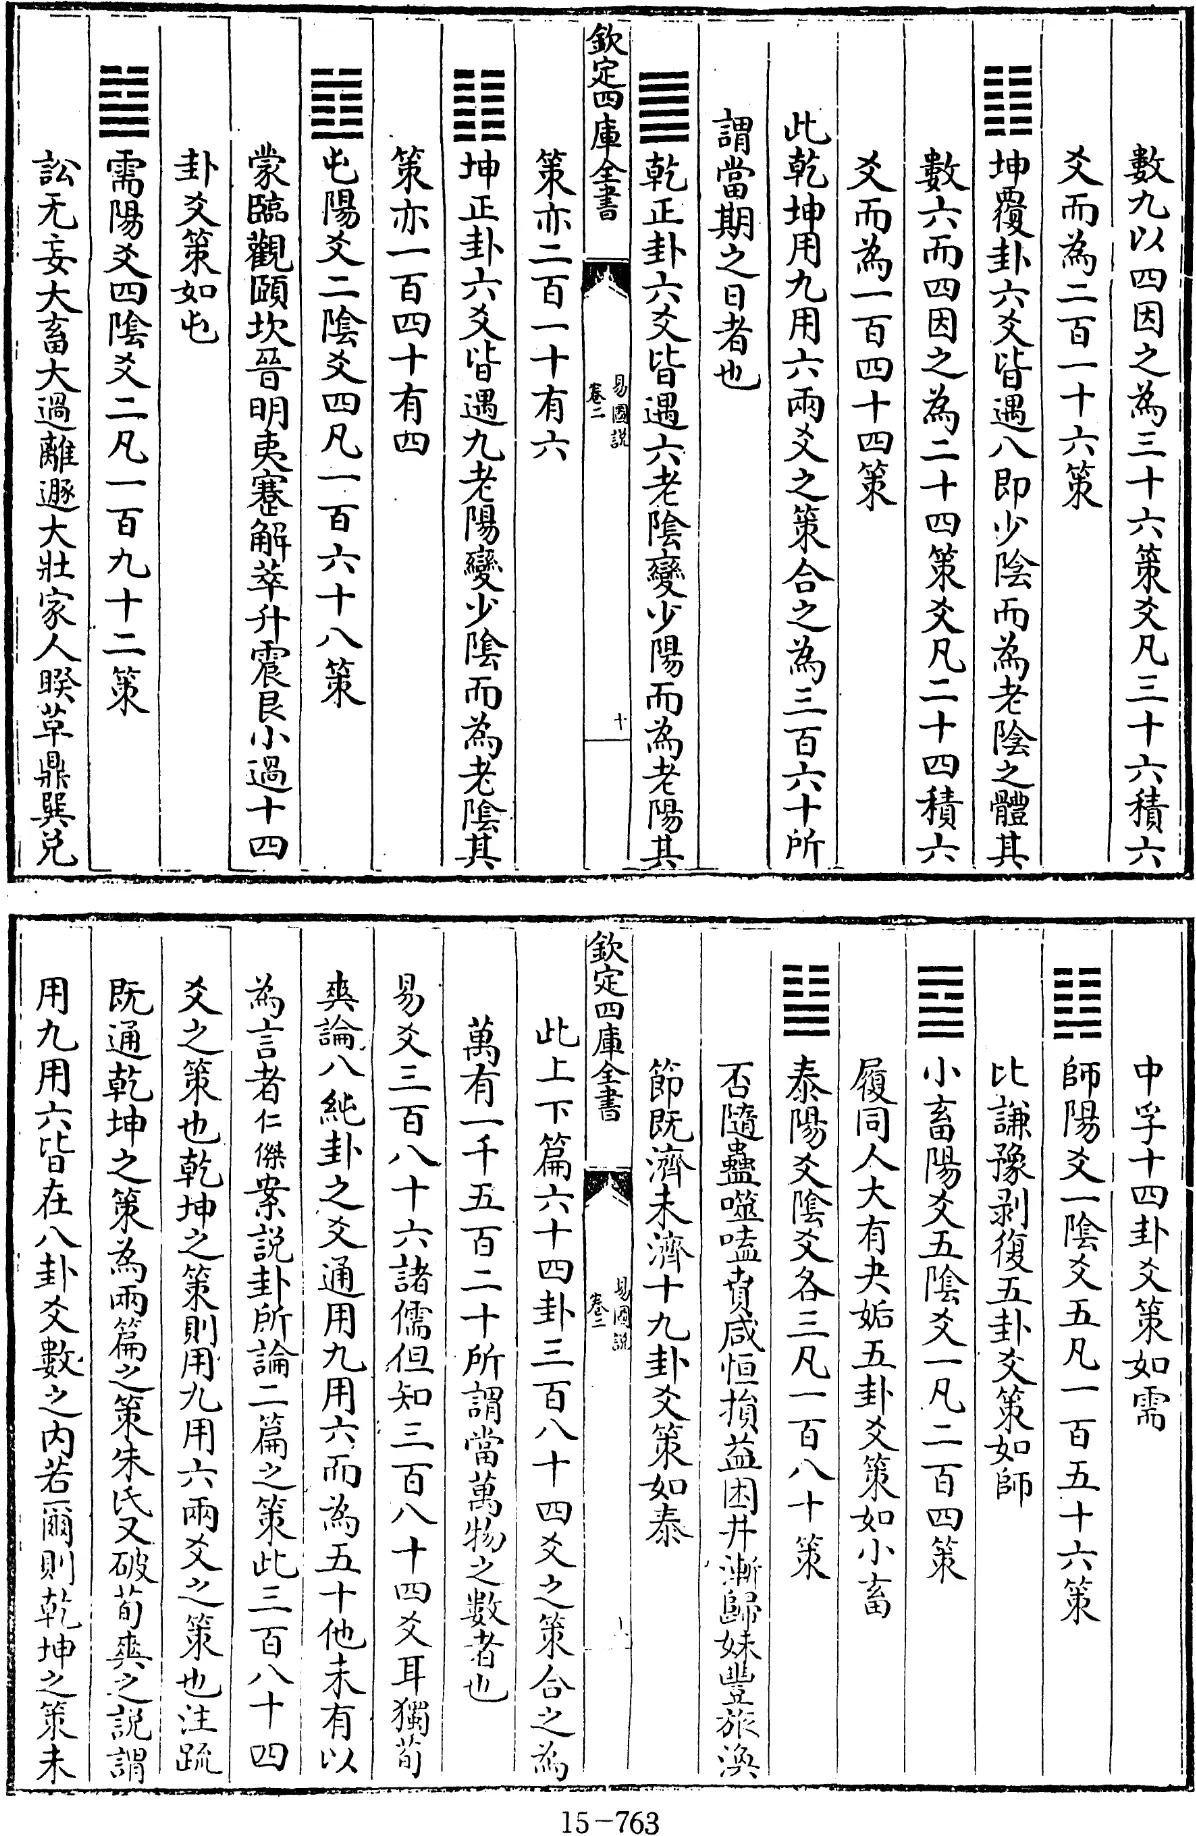 數九以四因之為三十六策爻凡三十六積六
爻而為二百一十六策
坤覆卦六爻皆遇八即少陰而為老陰之體其
數六而四因之為二十四策爻凡二十四積六
爻而為一百四十四策
此乾坤用九用六兩爻之策合之為三百六十所
謂當期之日者也
乾正卦六爻皆遇六老陰變少陽而為老陽其
欽定四庫全書
易圖説
卷二
十
策亦二百一十有六
坤正卦六爻皆遇九老陽變少陰而為老陰其
策亦一百四十有四
屯陽爻二陰爻四凡一百六十八策
蒙臨觀頤坎晉明夷蹇解萃升震艮小過十四
卦爻策如屯
需陽爻四陰爻二凡一百九十二策
訟无妄大畜大過離遯大壯家人睽革鼎巽兌
中孚十四卦爻策如需
師陽爻一陰爻五凡一百五十六策
比謙豫剥復五卦爻策如師
小畜陽爻五陰爻一凡二百四策
履同人大有夬姤五卦爻策如小畜
泰陽爻陰爻各三凡一百八十策
否隨蠱噬嗑賁咸恒損益困井漸歸妹豐旅渙
節既濟未濟十九卦爻策如泰
欽定四庫全書
易圖説
卷二
此上下篇六十四卦三百八十四爻之策合之為
萬有一千五百二十所謂當萬物之數者也
易爻三百八十六諸儒但知三百八十四爻耳獨荀
爽論八純卦之爻通用九用六而為五十他未有以
為言者仁傑案説卦所論二篇之策此三百八十四
爻之策也乾坤之策則用九用六兩爻之策也注疏
既通乾坤之策為兩篇之策朱氏又破荀爽之説謂
用九用六皆在八卦爻數之内若爾則乾坤之策未
15-763